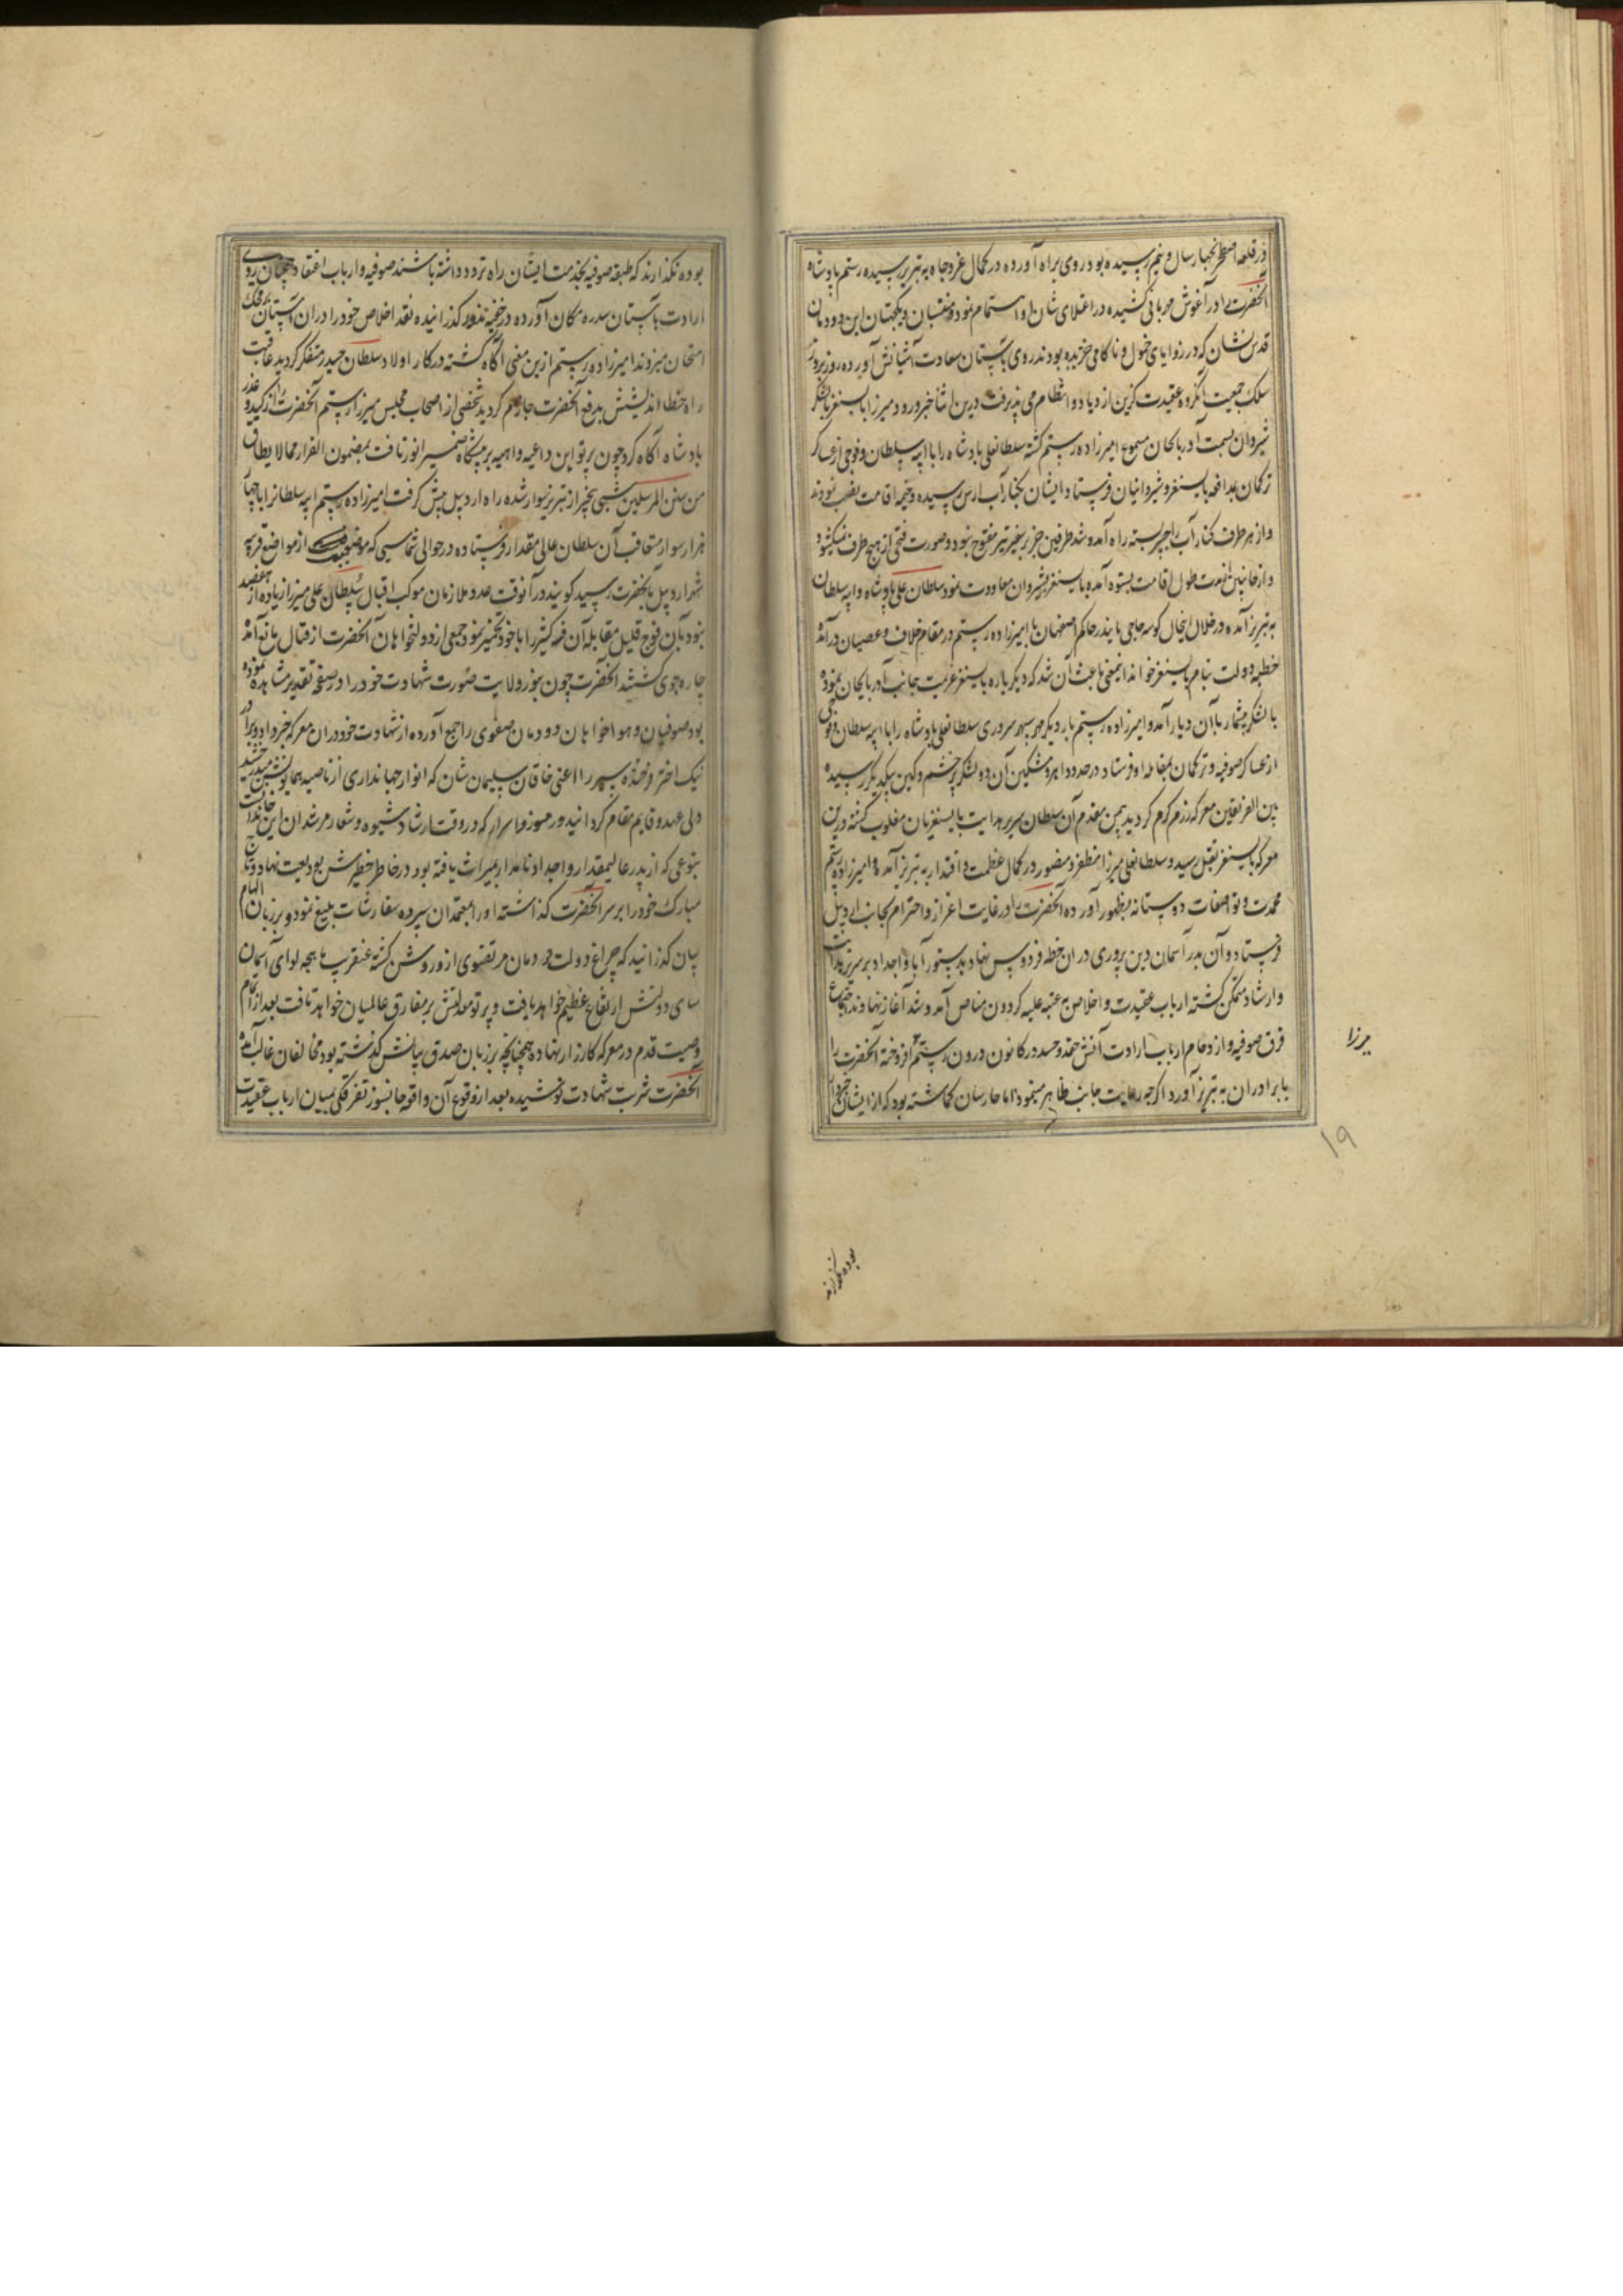 در قلعه اصطخر بچهار سال و نیم رسیده بود روی براه آورده در کمال عز و جاه به تبریز رسیده رستم پادشاه
آنحضرت را در آغوش مهربانی کشیده در اعلای شان او اهتمام نمود و منتسبان و یکجهتان این دودمان
قدس نشان که در زوایای خمول و ناکامی خزیده بودند روی بآستان سعادت آشیانش آورده روز بروز
سلک جمعیت آنگروه عقیدت گزین ازدیاد و انتظام می پذیرفت درین اثنا خبر ورود میرزا بایسنغر با لشکر
شیروان بسمت آذربایجان مسموع امیرزاده رستم گشته سلطانعلی پادشاه را با ایبه سلطان و فوجی از عساکر
ترکمان بمدافعه بایسنغر و شیروانیان فرستاد ایشان بکنار آب ارس رسیده و خیمه اقامت نصب نمودند
و از هر طرف کنار آب را چپر بسته راه آمد و شد طرفین جز بر سفیر تیر مفتوح نبود و صورت فتحی از هیچ طرف نمیکشود
و از جانبین از مدت طول اقامت بستوه آمده بایسنغر بشیروان معاودت نمود سلطان علی پادشاه و ایبه سلطان
به تبریز آمده در خلال اینحال کوسه حاجی بایندر حاکم اصفهان با امیرزاده رستم در مقام خلاف و عصیان درآمده
خطبه دولت بنام بایسنغر خواند اینمعنی باعث آن شد که دیگرباره بایسنغر عزیمت جانب آذربایجان نموده
با لشکر بیشمار بآن دیار آمد و امیرزاده رستم بار دیگر مهر سپهر سروری سلطانعلی پادشاه را با ایبه سلطان و فوجی
از عساکر صوفیه و ترکمان بمقابله او فرستاد در حدود اهر و مشکین آن دو لشکر پر خشم و کین بیکدیگر رسیده
بین الفریقین معرکه رزم گرم گردید بیمن مقدم آن سلطان سریر هدایت بایسنغریان مغلوب گشته درین
معرکه بایسنغر بقتل رسید و سلطانعلی میرزا مظفر و منصور در کمال عظمت و اقتدار به تبریز آمده و امیرزاده رستم
محمدت و تواضعات دوستانه بظهور آورده آنحضرت را در غایت اعزاز و احترام بجانب اردبیل
فرستاد و آن بدر آسمان دین پروری در آن خطه فردوس نهاد بدستور آبا و اجداد بر سریر هدایت
و ارشاد متمکن گشته ارباب عقیدت و اخلاص به عتبه علیه گردون مناص آمد و شد آغاز نهادند اجتماع
فرق صوفیه و ازدحام ارباب ارادت آتش حقد و حسد در کانون درون رستم افروخته آنحضرت را
با برادران به تبریز آورد اگرچه رعایت جانب ظاهر مینمود اما حارسان گماشته بود که از ایشان خبردار
میرزا
۱۹
بوده نگذارند
بوده نگذارند که طبقه صوفیه بخدمت ایشان راه تردد داشته باشند صوفیه و ارباب اعتقاد همچنان روی
ارادت بآستان سدره مکان آورده در خفیه نذور گذرانیده نقد اخلاص خود را در آن آستان بمحک
امتحان میزدند امیرزاده رستم ازین معنی آگاه گشته در کار اولاد سلطان حیدر متفکر گردید عاقبت
راه خطا اندیشش بدفع آنحضرت جازم گردید شخصی از اصحاب مجلس میرزا رستم آنحضرت را از کید و غدر
پادشاه آگاه کرد چون پرتو این داعیه واهیه بر پیشگاه ضمیر انور تافت بمضمون الفرار مما لا یطاق
من سنن المرسلین شبی بیخبر از تبریز سوار شده راه اردبیل پیش گرفت امیرزاده رستم ایبه سلطان را با چهار
هزار سوار متعاقب آن سلطان عالی مقدار فرستاده در حوالی شماسی که موضعیست از مواضع قریبه
شهر اردبیل بآنحضرت رسید گویند در آنوقت عدد ملازمان موکب اقبال سلطان علی میرزا زیاده از هفتصد
نبود بآن فوج قلیل مقابله آن فئه کثیر را با خود تخمیر نمود جمعی از دولتخواهان آنحضرت از قتال مانع آمده
چاره جوی گشتند آنحضرت چون بنور ولایت صورت شهادت خود را در صفحه تقدیر مشاهده نموده
بود صوفیان و هواخواهان دودمان صفوی را جمع آورده از شهادت خود در آن معرکه خبر داد و برادر
نیک اختر فرخنده سپهر را اعنی خاقان سلیمان شان که انوار جهانداری از ناصیه همایونش میدرخشید
ولی عهد و قایم مقام گردانید و رموز و اسرار که در وقت ارشاد شیوه و شعار مرشدان این خاندانست
بنوعی که از پدر عالیمقدار و اجداد نامدار بمیراث یافته بود در خاطر خطیرش بودیعت نهاد و تاج
مبارک خود را بر سر آنحضرت گذاشته او را بمعتمدان سپرده سفارشات بلیغ نمود و بر زبان الهام
بیان گذرانید که چراغ دولت دودمان مرتضوی از و روشن گشته عنقریب ماهچه لوای آسمان
سای دولتش ارتفاع عظیم خواهد یافت و پرتو معدلتش بر مفارق عالمیان خواهد تافت بعد از اتمام
وصیت قدم در معرکه کارزار نهاده همچنانچه بر زبان صدق بیانش گذشته بود مخالفان غالب آمده
آنحضرت شربت شهادت نوشیده بعد از وقوع آن واقعه جانسوز تفرقگی بمیان ارباب عقیدت